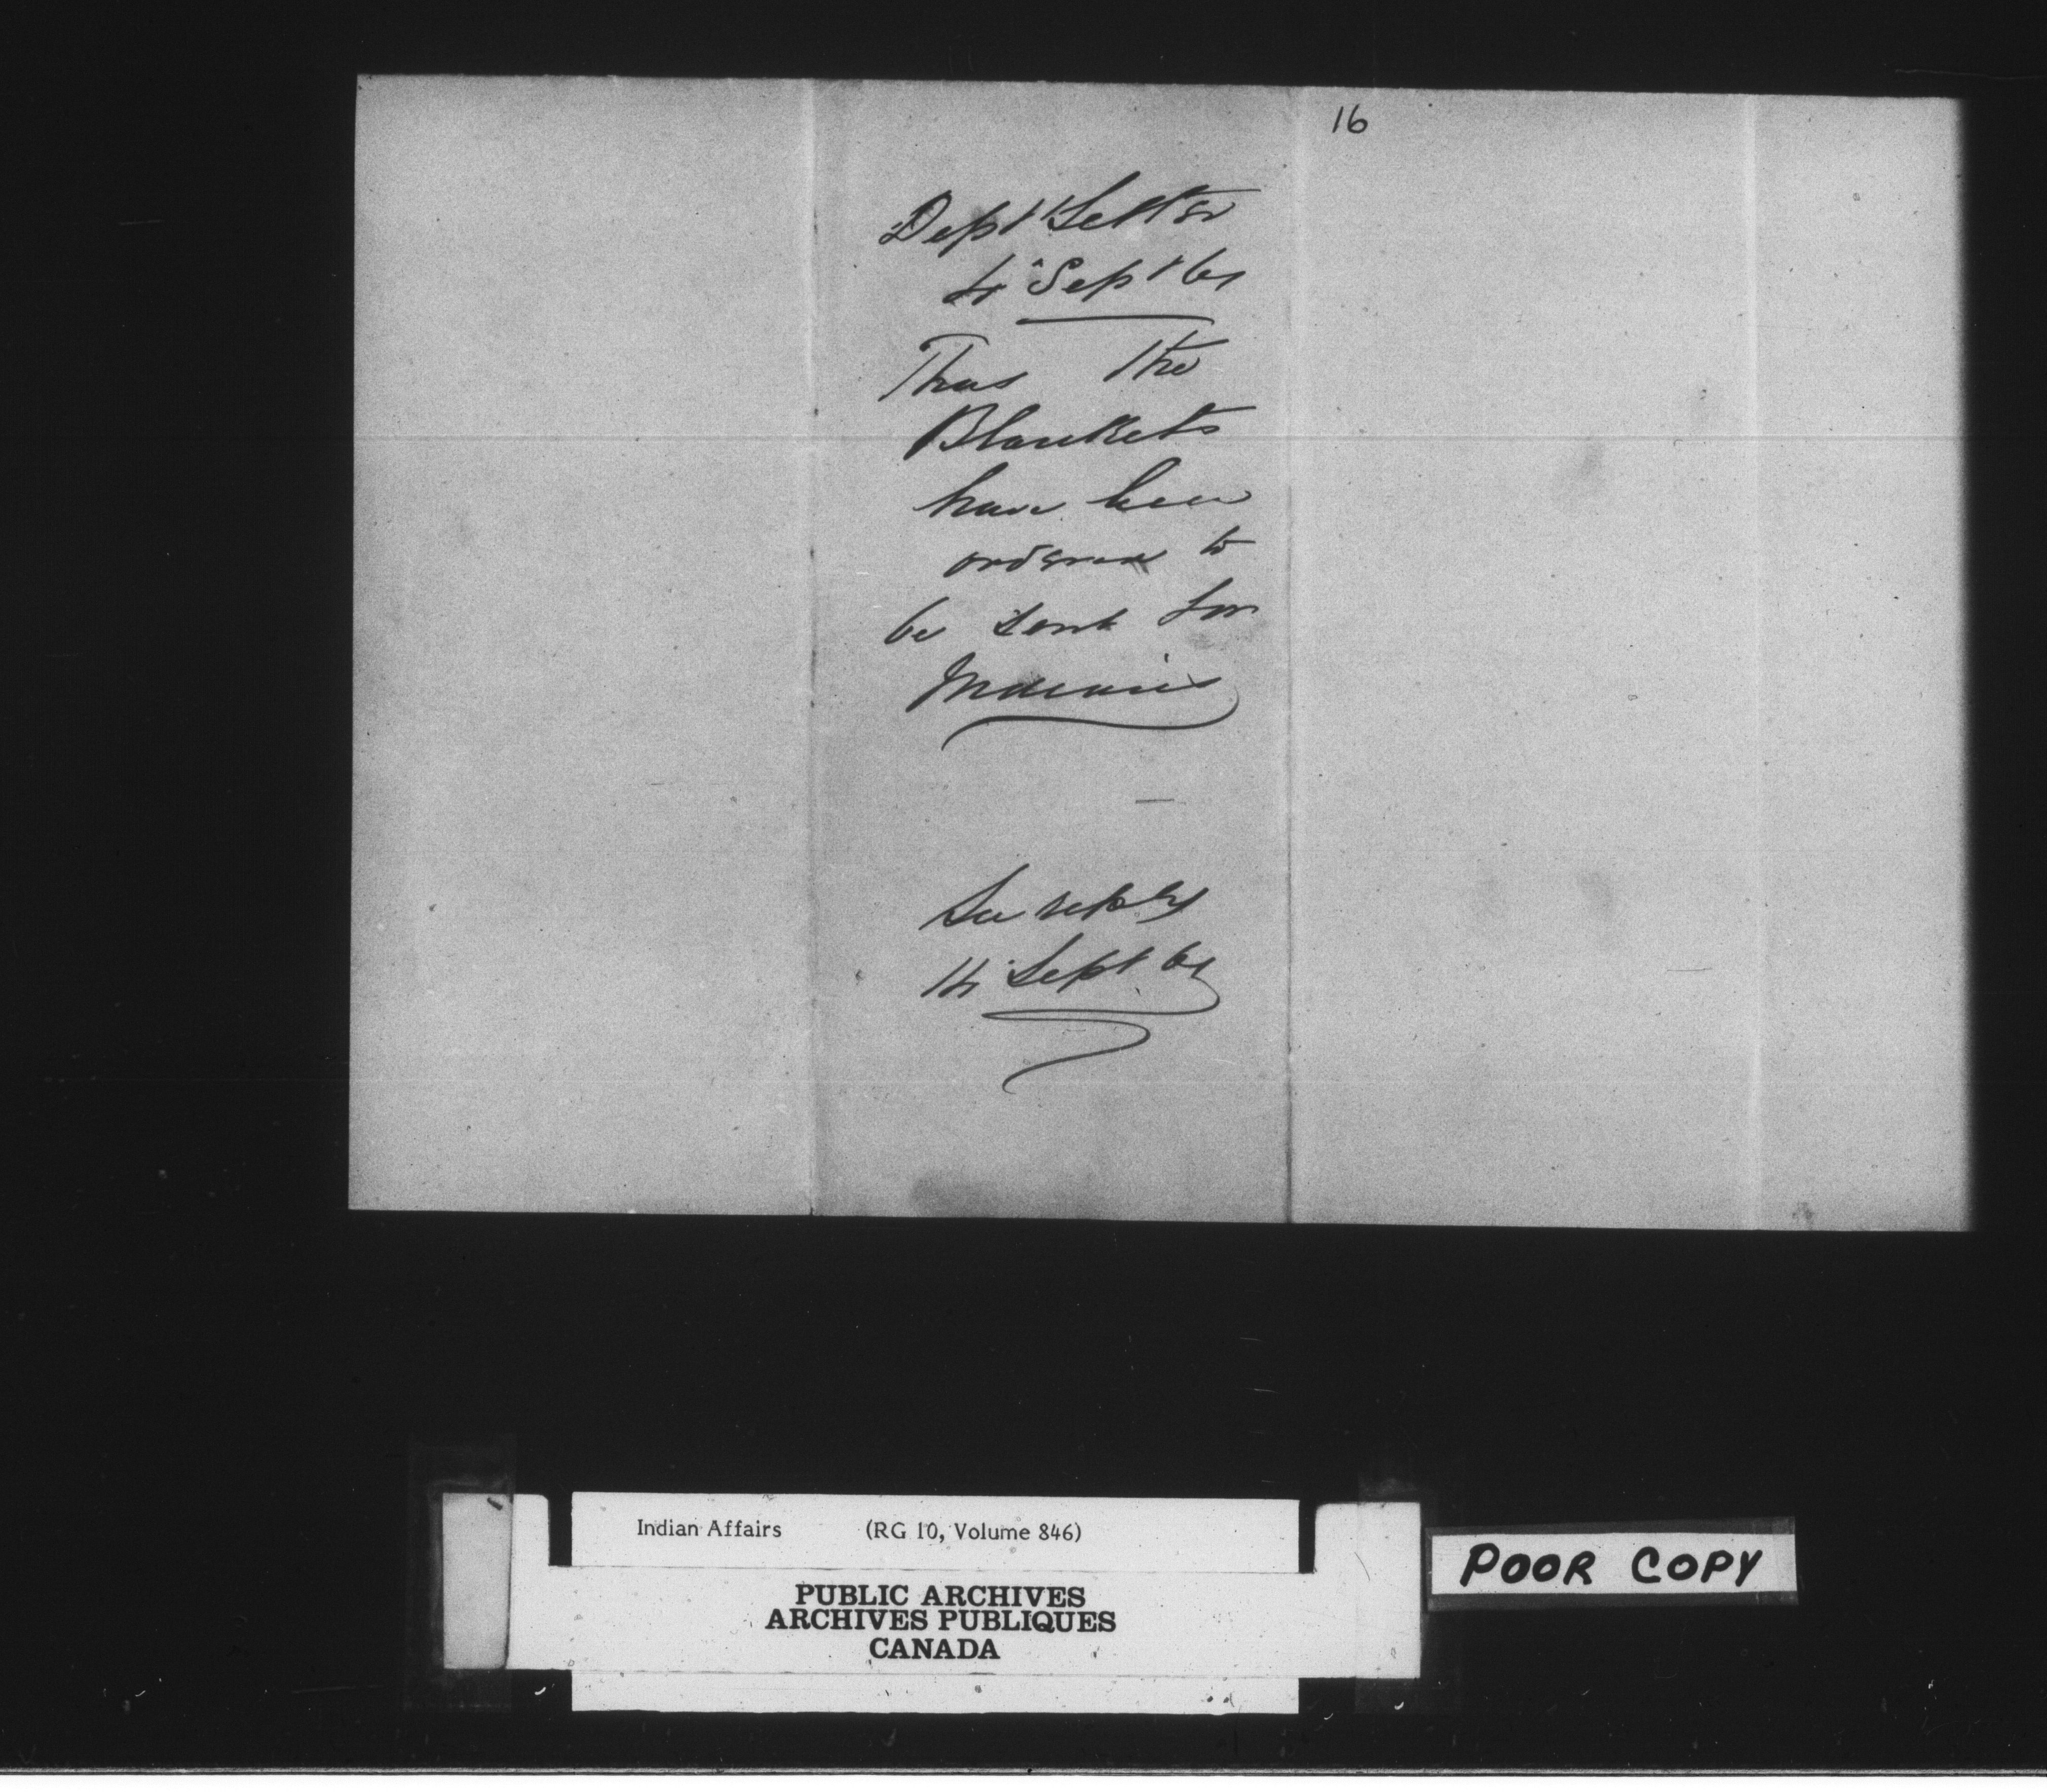 16
Dept Letter
4" Sept 61
That the
Blankets
have been
ordered to
be sent for
Indians
See reply
14" Sept 61
Indian Affairs (RG 10, Volume 846)
PUBLIC ARCHIVES
ARCHIVES PUBLIQUES
CANADA
POOR COPY